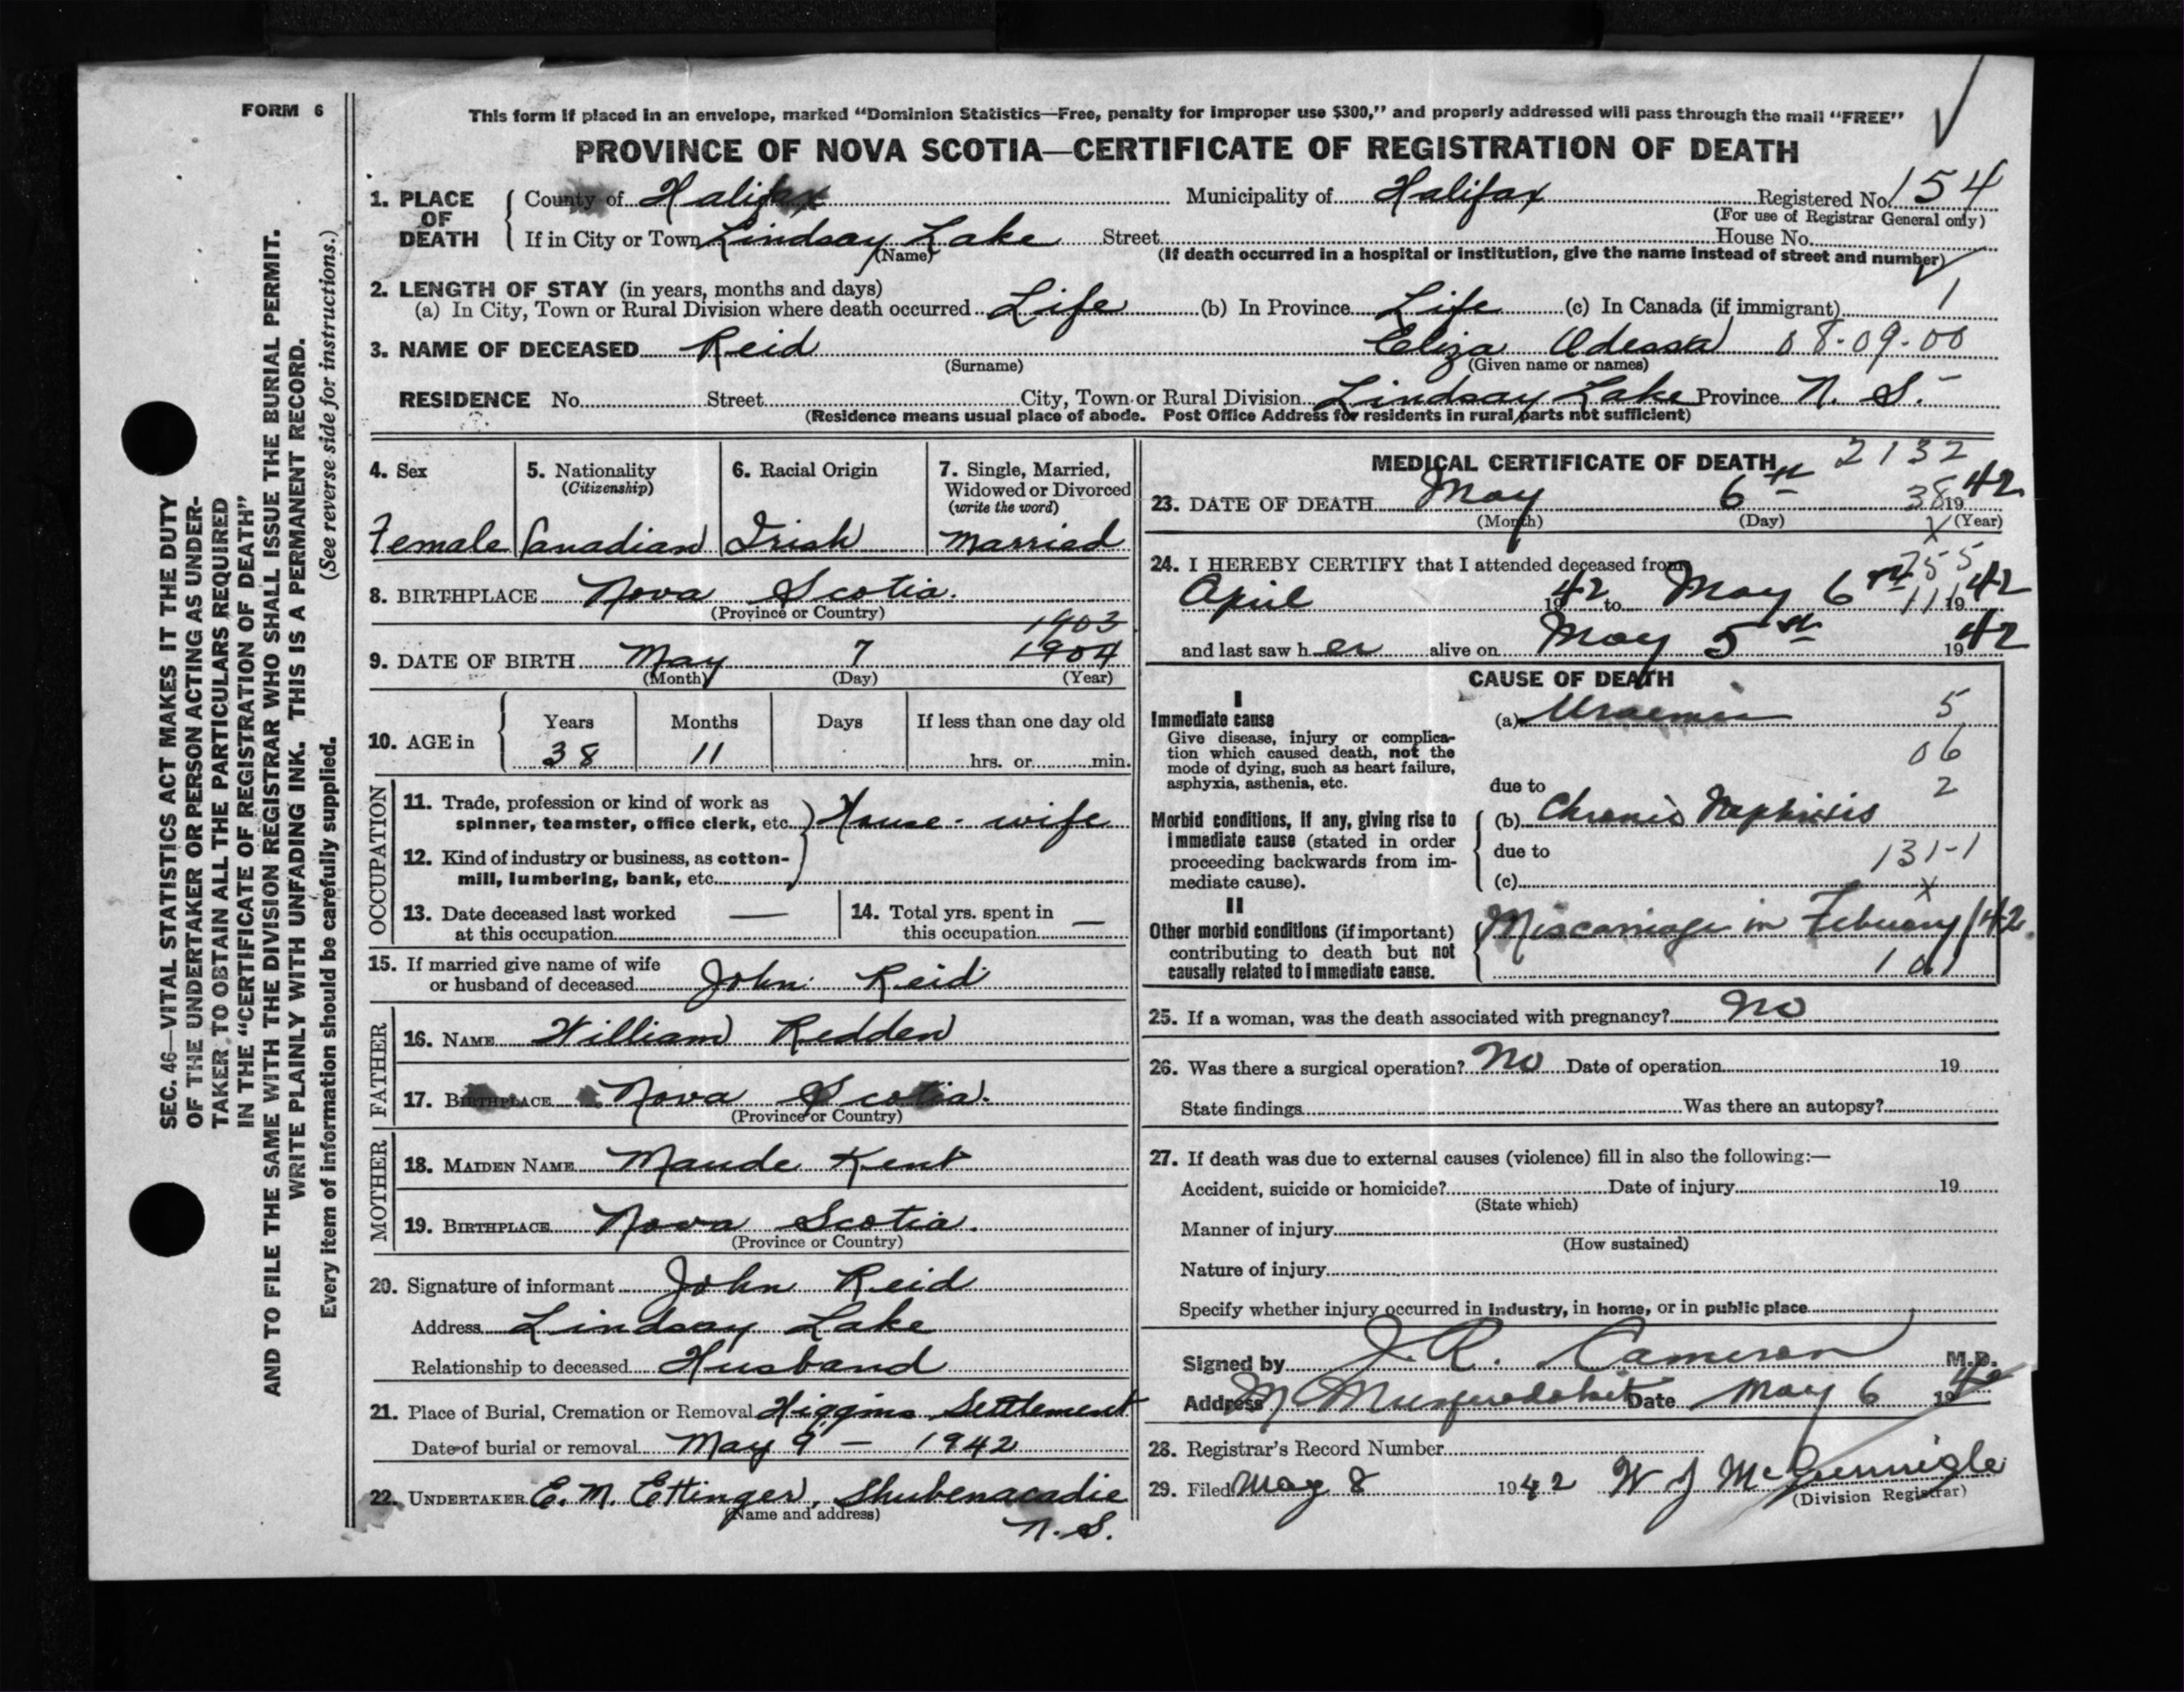 FORM 6
This form if placed in an envelope, marked “Dominion Statistics—Free, penalty for improper use $300,” and properly addressed will pass through the mail “FREE”
PROVINCE OF NOVA SCOTIA—CERTIFICATE OF REGISTRATION OF DEATH
1. PLACE OF DEATH County of Halifax Municipality of Halifax Registered No. 154
(For use of Registrar General only)
If in City or Town Lindsay Lake Street House No.
(Name) (If death occurred in a hospital or institution, give the name instead of street and number)
2. LENGTH OF STAY (in years, months and days)
(a) In City, Town or Rural Division where death occurred Life (b) In Province Life (c) In Canada (if immigrant) 1
3. NAME OF DECEASED Reid Eliza Odessa 08-09-00
(Surname) (Given name or names)
RESIDENCE No. Street City, Town or Rural Division Lindsay Lake Province N. S.
(Residence means usual place of abode. Post Office Address for residents in rural parts not sufficient)
SEC. 46—VITAL STATISTICS ACT MAKES IT THE DUTY
OF THE UNDERTAKER OR PERSON ACTING AS UNDER-
TAKER TO OBTAIN ALL THE PARTICULARS REQUIRED
IN THE “CERTIFICATE OF REGISTRATION OF DEATH”
AND TO FILE THE SAME WITH THE DIVISION REGISTRAR WHO SHALL ISSUE THE BURIAL PERMIT.
WRITE PLAINLY WITH UNFADING INK. THIS IS A PERMANENT RECORD.
Every item of information should be carefully supplied. (See reverse side for instructions.)
4. Sex
Female
5. Nationality
(Citizenship)
Canadian
6. Racial Origin
Irish
7. Single, Married,
Widowed or Divorced
(write the word)
Married
8. BIRTHPLACE Nova Scotia.
(Province or Country)
1903
9. DATE OF BIRTH May 7 1904
(Month) (Day) (Year)
10. AGE in Years Months Days If less than one day old
38 11 hrs. or min.
OCCUPATION
11. Trade, profession or kind of work as
spinner, teamster, office clerk, etc. House-wife
12. Kind of industry or business, as cotton-
mill, lumbering, bank, etc.
13. Date deceased last worked —
at this occupation
14. Total yrs. spent in
this occupation —
15. If married give name of wife
or husband of deceased John Reid
FATHER
16. NAME William Redden
17. BIRTHPLACE Nova Scotia.
(Province or Country)
MOTHER
18. MAIDEN NAME Maude Kent
19. BIRTHPLACE Nova Scotia.
(Province or Country)
20. Signature of informant John Reid
Address Lindsay Lake
Relationship to deceased Husband
21. Place of Burial, Cremation or Removal Higgins Settlement
Date of burial or removal May 9 — 1942
22. UNDERTAKER E. N. Ettinger, Shubenacadie
(Name and address) N. S.
MEDICAL CERTIFICATE OF DEATH 2132
23. DATE OF DEATH May 6th 38 1942
(Month) (Day) X (Year)
24. I HEREBY CERTIFY that I attended deceased from 755
April 1942 to May 6th 11 1942
and last saw her alive on May 5th 1942
CAUSE OF DEATH
I
Immediate cause (a) Uraemia 5
Give disease, injury or complica-
tion which caused death, not the
mode of dying, such as heart failure,
asphyxia, asthenia, etc.
06
due to 2
Morbid conditions, if any, giving rise to
immediate cause (stated in order
proceeding backwards from im-
mediate cause).
(b) Chronic Nephritis
due to 131-1
(c) X
II
Other morbid conditions (if important)
contributing to death but not
causally related to immediate cause.
Miscarriage in Febuary/42.
101
25. If a woman, was the death associated with pregnancy? No
26. Was there a surgical operation? No Date of operation 19
State findings Was there an autopsy?
27. If death was due to external causes (violence) fill in also the following:—
Accident, suicide or homicide? Date of injury 19
(State which)
Manner of injury
(How sustained)
Nature of injury
Specify whether injury occurred in industry, in home, or in public place
Signed by J. R. Cameron M.D.
Address M Musquodoboit Date May 6 1942
28. Registrar's Record Number
29. Filed May 8 1942 W J McGunnigle
(Division Registrar)